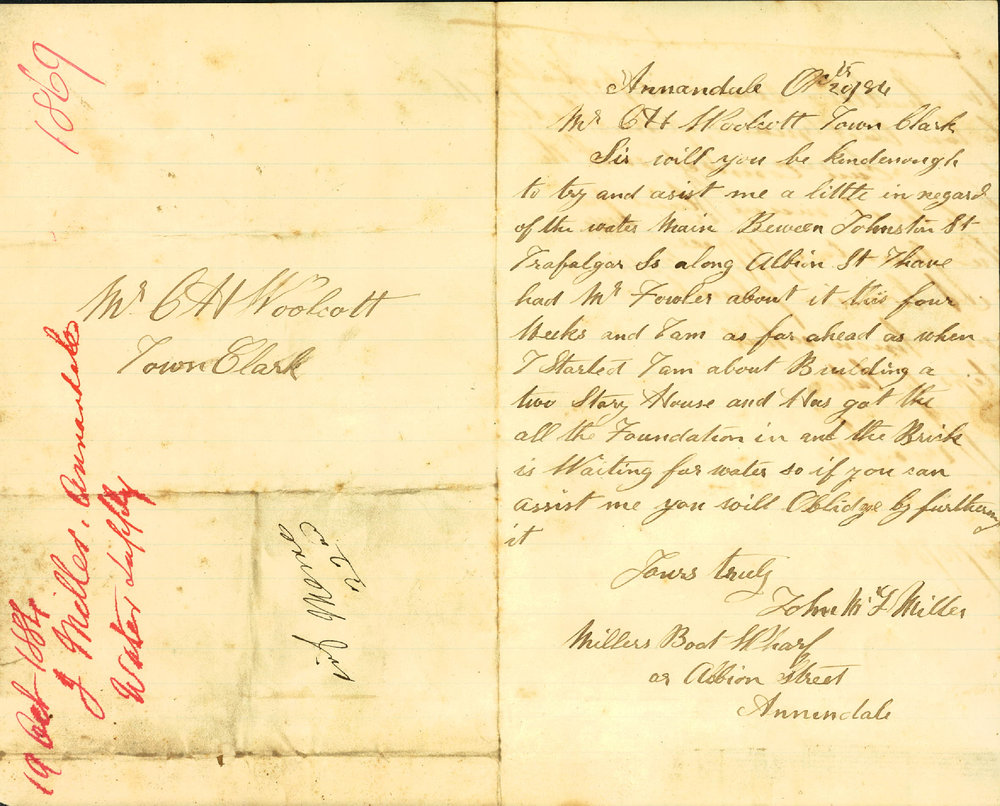 1869
Mr C H Woolcott
Town Clark
19 Oct 1884
J Miller. Annandale
Water supply
Annandale Oct
Mr C H Woolcott Town Clark
Sir will you be kindenough
to try and asist me a little in regard
of the water Main Beween Johnston St
Trafalgar St along Albion St I have
had Mr Fowler about it this four
Weeks and I am as far ahead as when
I Started I am about Building a
two Story House and Has got the
all the Foundation in and the Brick
is Waiting for water so if you can
assist me you will Oblidge by furthering
it
Yours truly
John Mc F Miller
Millers Boat Wharf
or Albion Street
Annendale